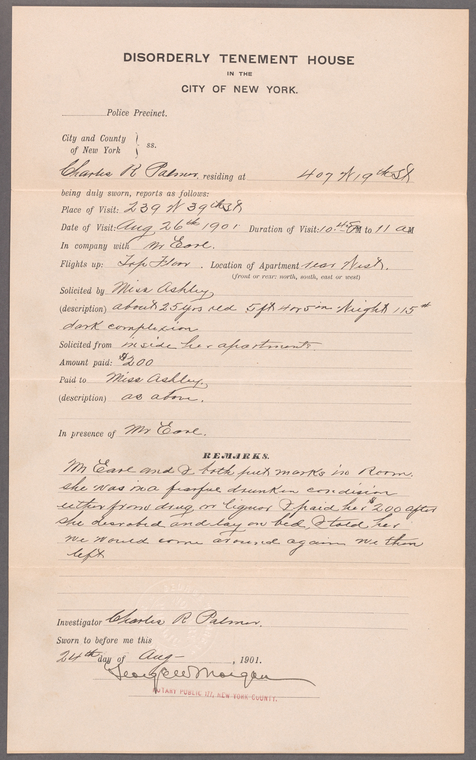 DISORDERLY TENEMENT HOUSE
IN THE
CITY OF NEW YORK.
Police Precinct.
City and County
of New York } ss.
Charles R Palmer, residing at 407 W 19th St
being duly sworn, reports as follows:
Place of Visit: 239 W 39th St
Date of Visit: Aug 26th 1901 Duration of Visit: 10 45 PM to 11 AM
In company with Mr Earl.
Flights up: Top Floor. Location of Apartment rear West.
(front or rear: north, south, east or west)
Solicited by Miss Ashley
(description) about 25 yrs old 5 ft 4 or 5 in Weight 115 #
dark complexion
Solicited from inside her apartments
Amount paid: $2.00
Paid to Miss Ashley
(description) as above.
In presence of Mr Earl.
REMARKS.
Mr Earl and I both put marks in Room.
she was in a fearful drunken condision
either from drug or liquor I paid her $2.00 after
she desrobed and lay on bed I told her
we would come around again we then
left
Investigator Charles R Palmer.
Sworn to before me this
24th day of Aug , 1901.
George W Morgan
NOTARY PUBLIC 177, NEW YORK COUNTY.